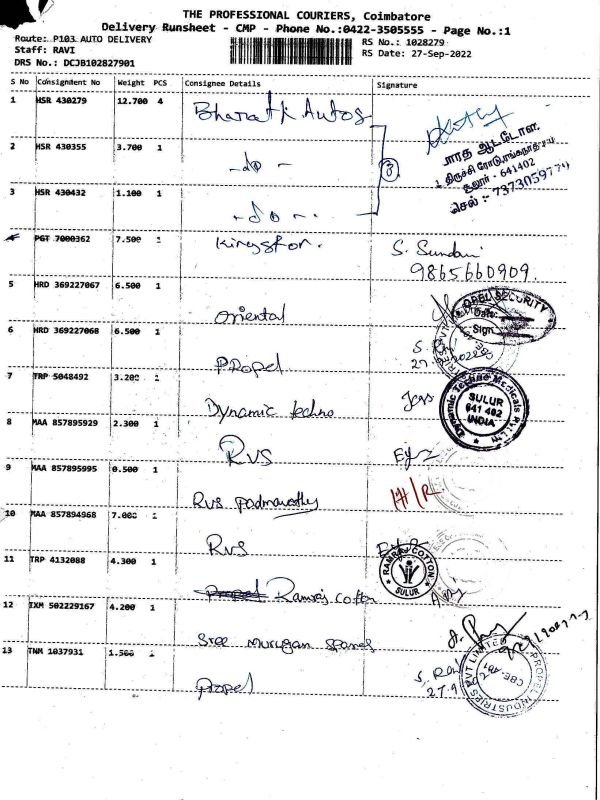 THE PROFESSIONAL COURIERS, Coimbatore
Delivery Runsheet - CMP - Phone No.:0422-3505555 - Page No.:1
Route: P103 AUTO DELIVERY
RS No.: 1028279
Staff: RAVI
RS Date: 27-Sep-2022
DRS No.: DCJB102827901
S No Consignment No Weight PCS Consignee Details Signature
1 HSR 430279 12.700 4 Bharath Autos
2 HSR 430355 3.700 1 -do-
3 HSR 430432 1.100 1 -do-
ஆட்டோஸ்
641402
செல் : 7373059779
PGT 7000362 7.500 1 Kingston. S. Sundari
9865660909.
5 HRD 369227067 6.500 1 Oriental
SECURITY
Date
Sign
6 HRD 369227068 6.500 1 Propel
7 TRP 5048492 3.200 1 Dynamic techno
Dynamic Techno Medicals Pvt Ltd
SULUR
641 402
INDIA
8 MAA 857895929 2.300 1 RVS
9 MAA 857895995 0.500 1 RVS padmavathy
10 MAA 857894968 7.000 1 RVS
11 TRP 4132088 4.300 1 Ramraj cotton
RAMRAJ COTTON
SULUR
12 IXM 502229167 4.200 1 Sree murugan spares
13 TNM 1037931 1.500 1 propel
S. Ravi
27.9
PROPEL INDUSTRIES PVT LIMITED
CBE